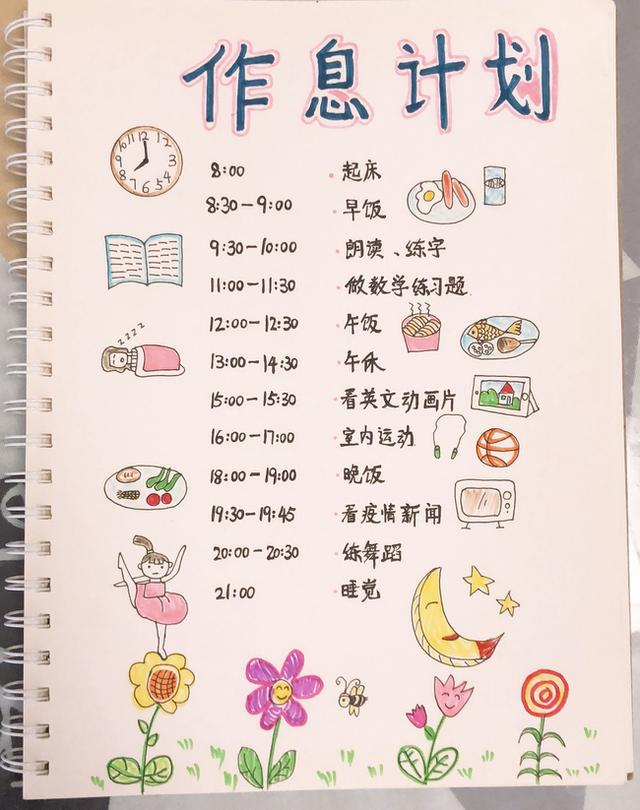 作息计划
8:00 起床
8:30-9:00 早饭
9:30-10:00 朗读、练字
11:00-11:30 做数学练习题
12:00-12:30 午饭
13:00-14:30 午休
zzzz
15:00-15:30 看英文动画片
16:00-17:00 室内运动
18:00-19:00 晚饭
19:30-19:45 看疫情新闻
20:00-20:30 练舞蹈
21:00 睡觉